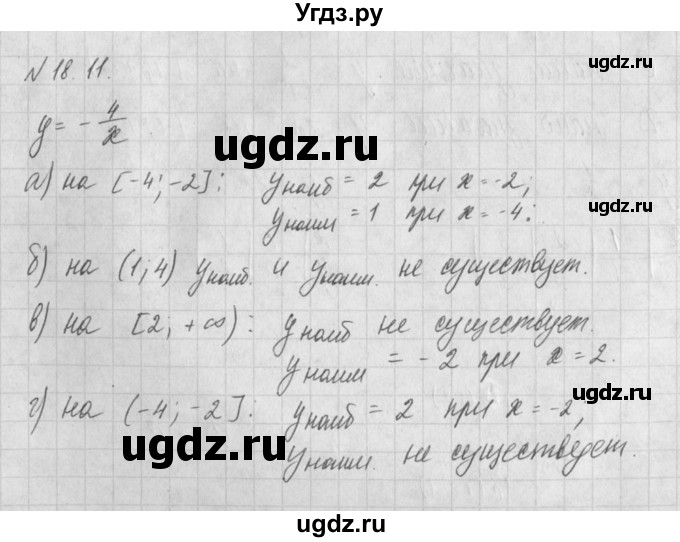 Угдз.ру
ugdz.ru
N 18. 11.
ugdz.ru
y = - 4/x
ugdz.ru
а) на [-4; -2]: yнаиб = 2 при x = -2;
yнаим = 1 при x = -4;
ugdz.ru
б) на (1; 4) yнаиб. и yнаим. не существует.
в) на [2; + ∞): yнаиб не существует.
ugdz.ru
yнаим = - 2 при x = 2.
ugdz.ru
г) на (-4; -2]: yнаиб = 2 при x = -2,
ugdz.ru
yнаим. не существует.
ugdz.ru
ugdz.ru